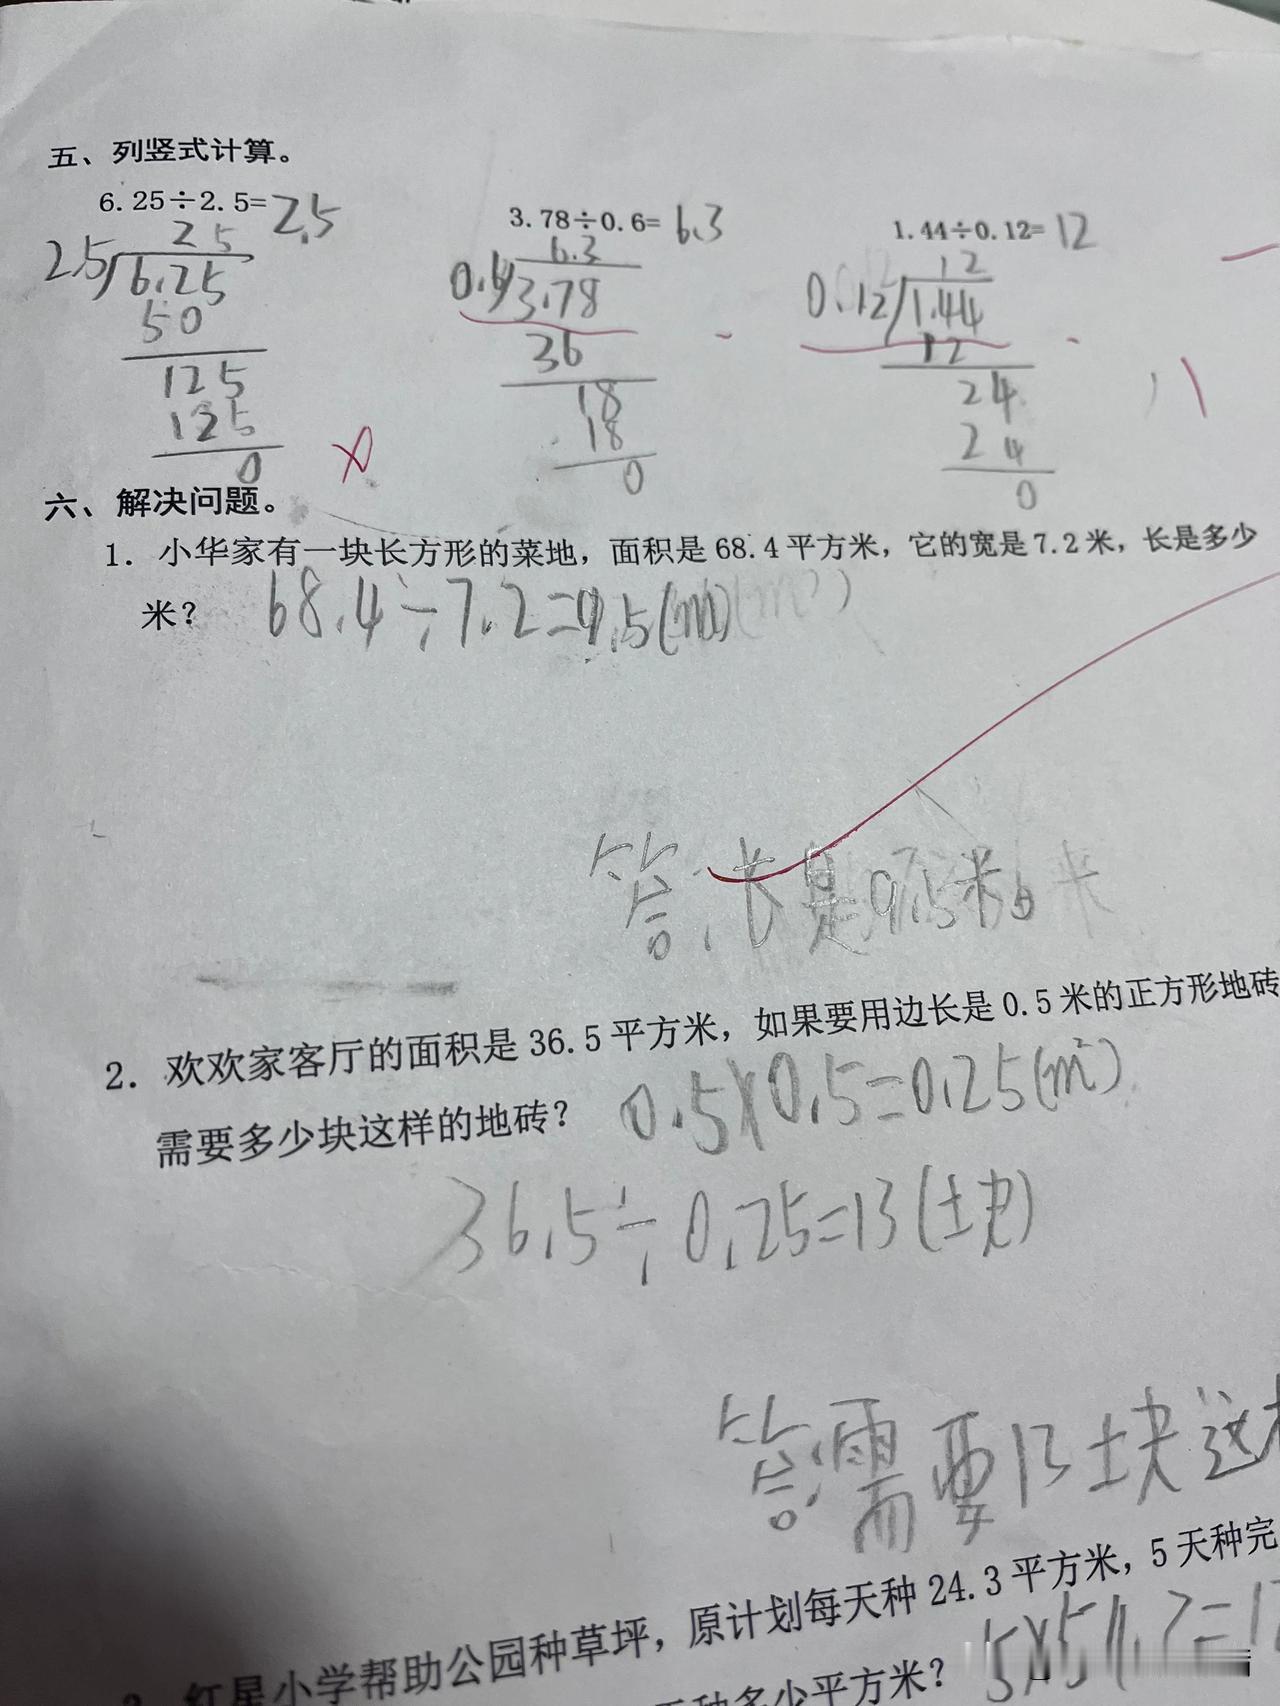 五、列竖式计算。
6.25÷2.5=2.5
3.78÷0.6=6.3
1.44÷0.12=12
2 5
25 6.25
50
125
125
0
6.3
0.6 3.78
36
18
18
0
12
0.12 1.44
12
24
24
0
六、解决问题。
1. 小华家有一块长方形的菜地，面积是68.4平方米，它的宽是7.2米，长是多少
米？ 68.4÷7.2=9.5(m)
答：长是9.5米。
2. 欢欢家客厅的面积是36.5平方米，如果要用边长是0.5米的正方形地砖
需要多少块这样的地砖？ 0.5×0.5=0.25(m²)
36.5÷0.25=13(块)
答：需要13块这
红星小学帮助公园种草坪，原计划每天种24.3平方米，5天种完
种多少平方米？